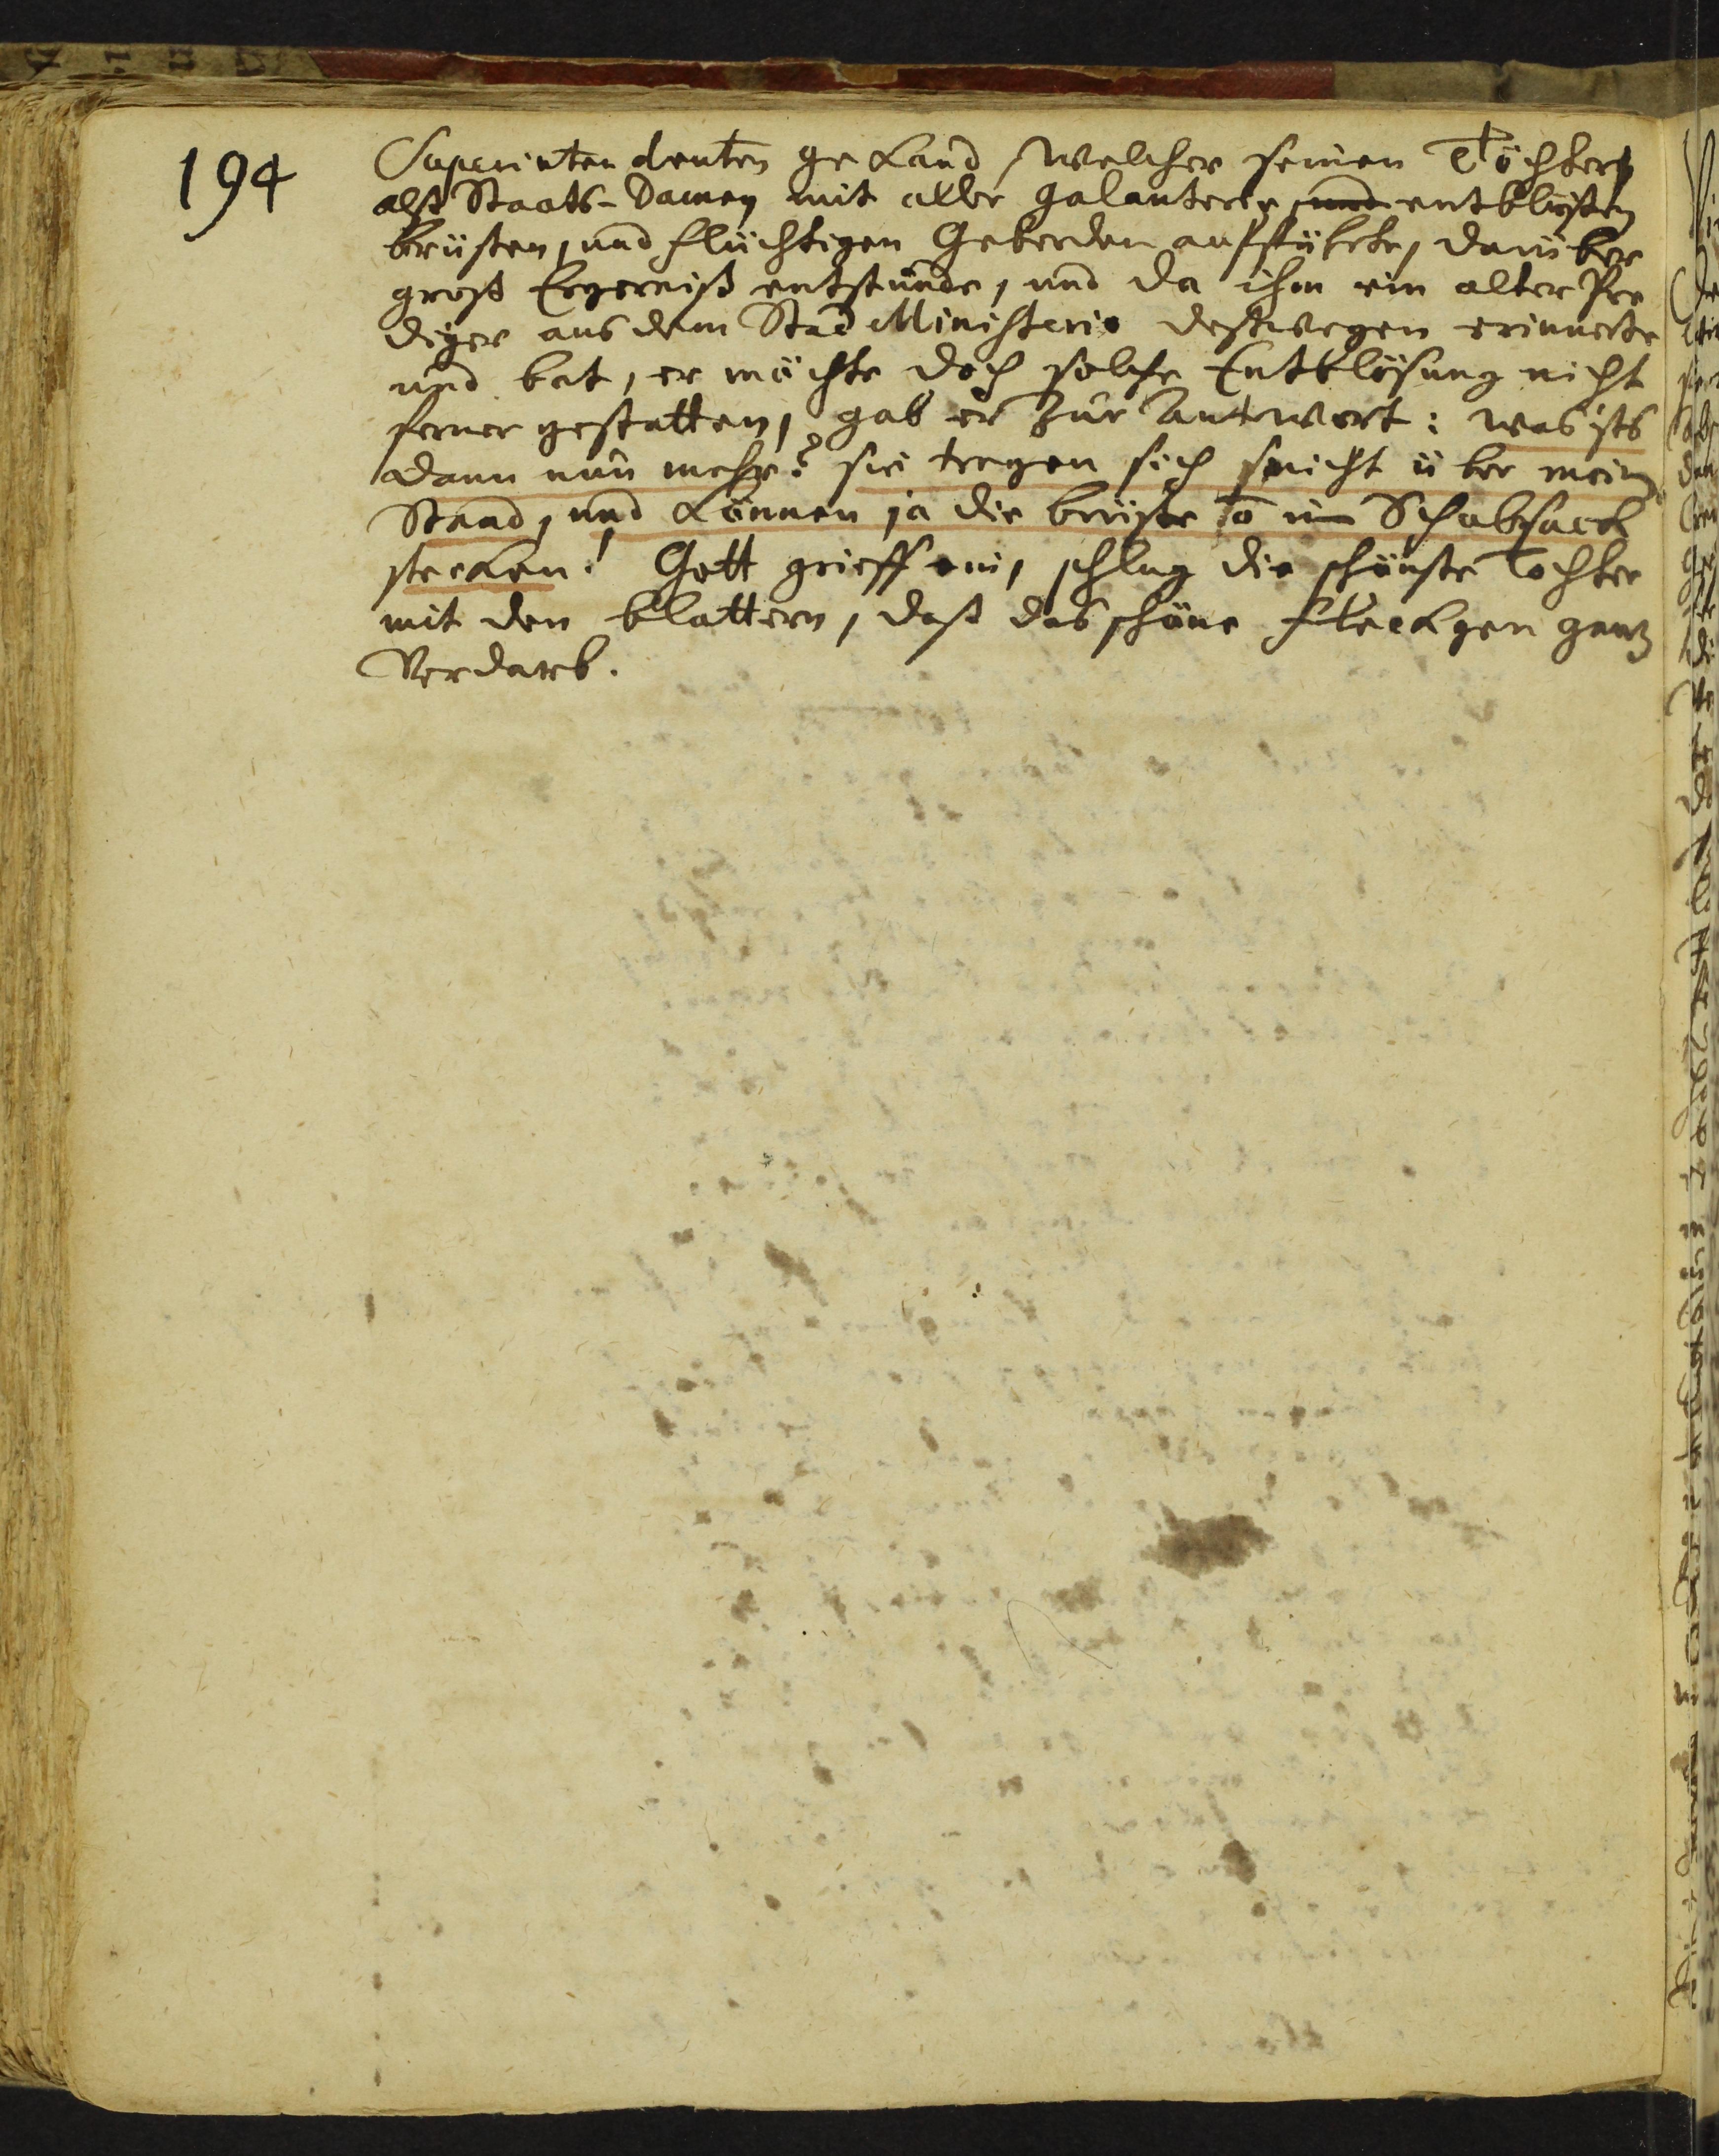 194
Superintendenten gekand, welcher seinen Töchtern
alß Staats-Damen mit aller galanterie, und entblösten
brüsten, und flüchtigen Geberden auffführte, darüber
groß Ergerniß entstunde, und da ihm ein alter Pre
diger aus dem Stad Ministerio deßwegen erinnerte
und bat, er möchte doch solche Entblösung nicht
ferner gestatten, gab er zur Antwort: was ists
dann nun mehr? sie tragen sich nicht über mein
Stand, und können ja die brüste im Schabsack
stecken! Gott grieff ein, schlug die schönste Tochter
mit den blattern, daß das schöne fleckgen gantz
verdarb.